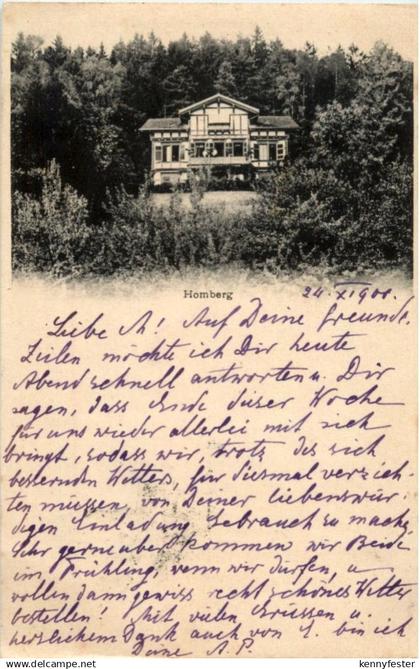 Homberg
24. XI 1900.
Liebe A! Auf Deine freundl.
Zeilen möchte ich Dir heute
Abend schnell antworten u. Dir
sagen, dass Ende dieser Woche
für uns wieder allerlei mit sich
bringt, sodass wir, trotz des sich
bessernden Wetters, für diesmal verzich-
ten müssen, von Deiner liebenswür-
digen Einladung Gebrauch zu mache
Sehr gerne aber kommen wir Beide
im Frühling, wenn wir dürfen, u.
wollen dann gewiss recht schönes Wetter
bestellen! Mit vielen Grüssen u.
herzlichem Dank auch von L. bin ich
Deine A. P.
kennyfester